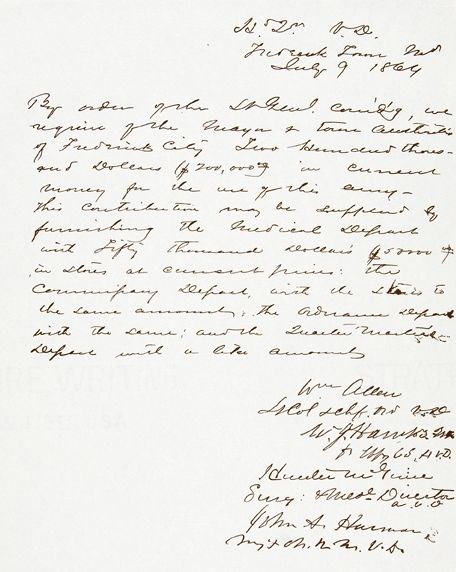 Hd Qrs V.D.
Frederick Town Md
July 9 1864
By order of the Lt Genl. Comdg, we
require of the Mayor & town authorities
of Frederick City Two Hundred thous-
and Dollars ($200,000) in current
money for the use of this army—
This contribution may be supplied by
furnishing the Medical Depart
with Fifty thousand Dollars ($50000)
in stores at current prices: the
Commissary Depart, with the stores to
the same amount; the Ordnance Depart
with the same; and the Quarter Master
Depart with a like amount
Wm Allen
Lt Col & Chf. Ord V.D.
W. J. Hawks
Hunter McGuire
Surg: & Med Director
A.V.D
John A. Harman
Maj & Ch. Q. M. V.D.